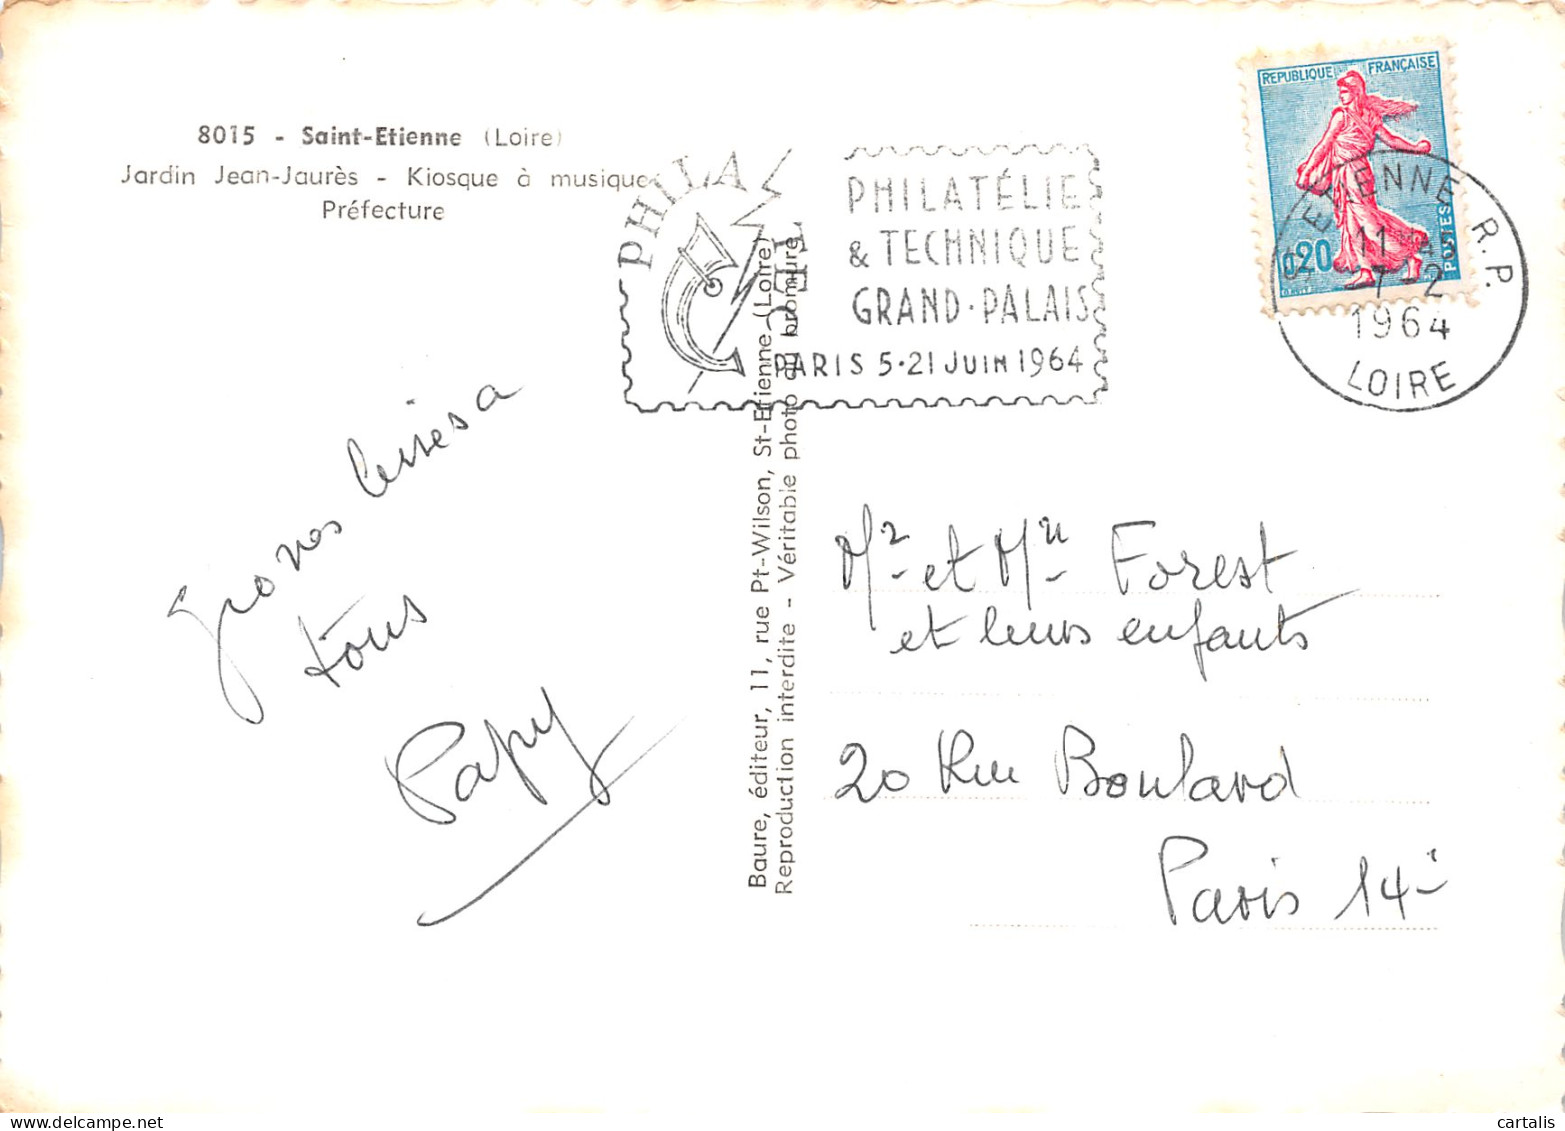 8015 - Saint-Etienne (Loire)
Jardin Jean-Jaurès - Kiosque à musique
Préfecture
PHILATEC
PHILATÉLIE
& TECHNIQUE
GRAND-PALAIS
PARIS 5•21 JUIN 1964
REPUBLIQUE FRANÇAISE
0,20
POSTES
ST ETIENNE R.P.
11 45
7-2
1964
LOIRE
Grosses bises a
tous
Papy
Baure, éditeur, 11, rue Pt-Wilson, St-Etienne (Loire)
Reproduction interdite - Véritable photo au bromure
Mr et Mme Forest
et leurs enfants
20 Rue Boulard
Paris 14e
cartalis